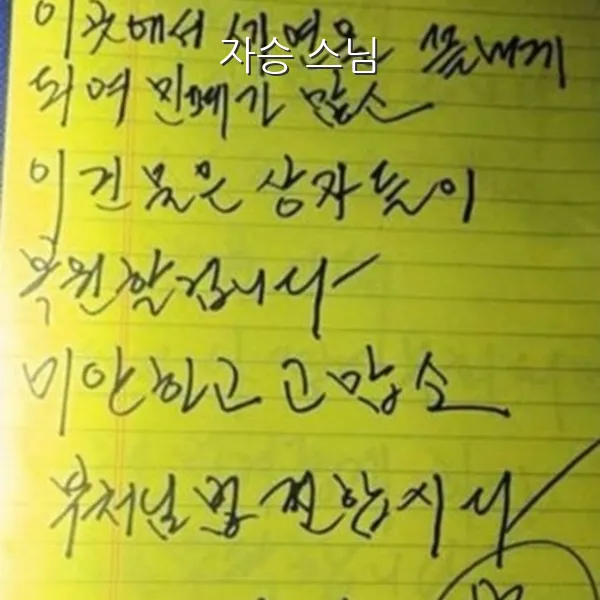 이곳에서 세연을 끝내게
자승 스님
되여 민폐가 많소
이 건물은 상자들이
복원할겁니다
미안하고 고맙소
부처님법 전합시다